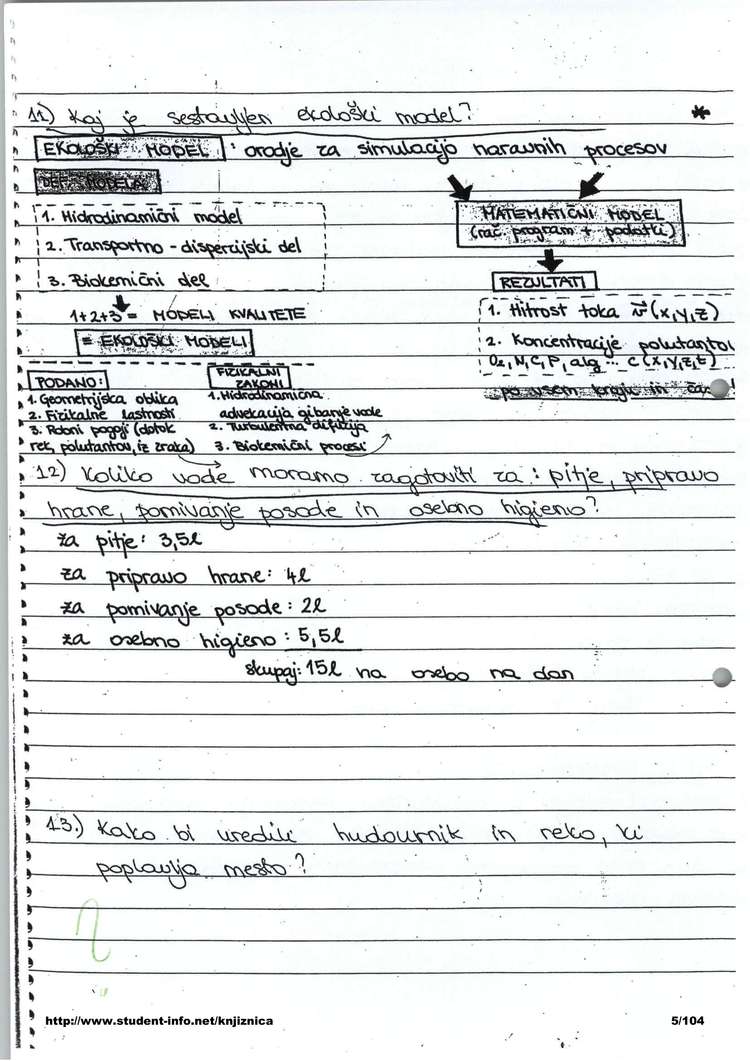 11) Kaj je sestavljen ekološki model? *
EKOLOŠKI MODEL : orodje za simulacijo naravnih procesov
DEF. MODELA
1. Hidrodinamični model
2. Transportno - disperzijski del
3. Biokemični del
1+2+3 = MODELI KVALITETE
= EKOLOŠKI MODELI
MATEMATIČNI MODEL
(rač. program + podatki)
REZULTATI
1. Hitrost toka v (x,y,z)
2. Koncentracije polutantov
O2, N, C, P, alg ... c (x,y,z,t)
po vsem kraju in času!
PODANO:
1. Geometrijska oblika
2. Fizikalne lastnosti
3. Robni pogoji (dotok
rek, polutantov, iz zraka)
FIZIKALNI
ZAKONI
1. Hidrodinamična
advekcija gibanje vode
2. Turbulentna difuzija
3. Biokemični procesi
12) Koliko vode moramo zagotoviti za : pitje, pripravo
hrane, pomivanje posode in osebno higieno?
za pitje: 3,5l
za pripravo hrane: 4l
za pomivanje posode : 2l
za osebno higieno : 5,5l
skupaj: 15l na osebo na dan
13.) Kako bi uredili hudournik in reko, ki
poplavlja mesto?
?
http://www.student-info.net/knjiznica 5/104